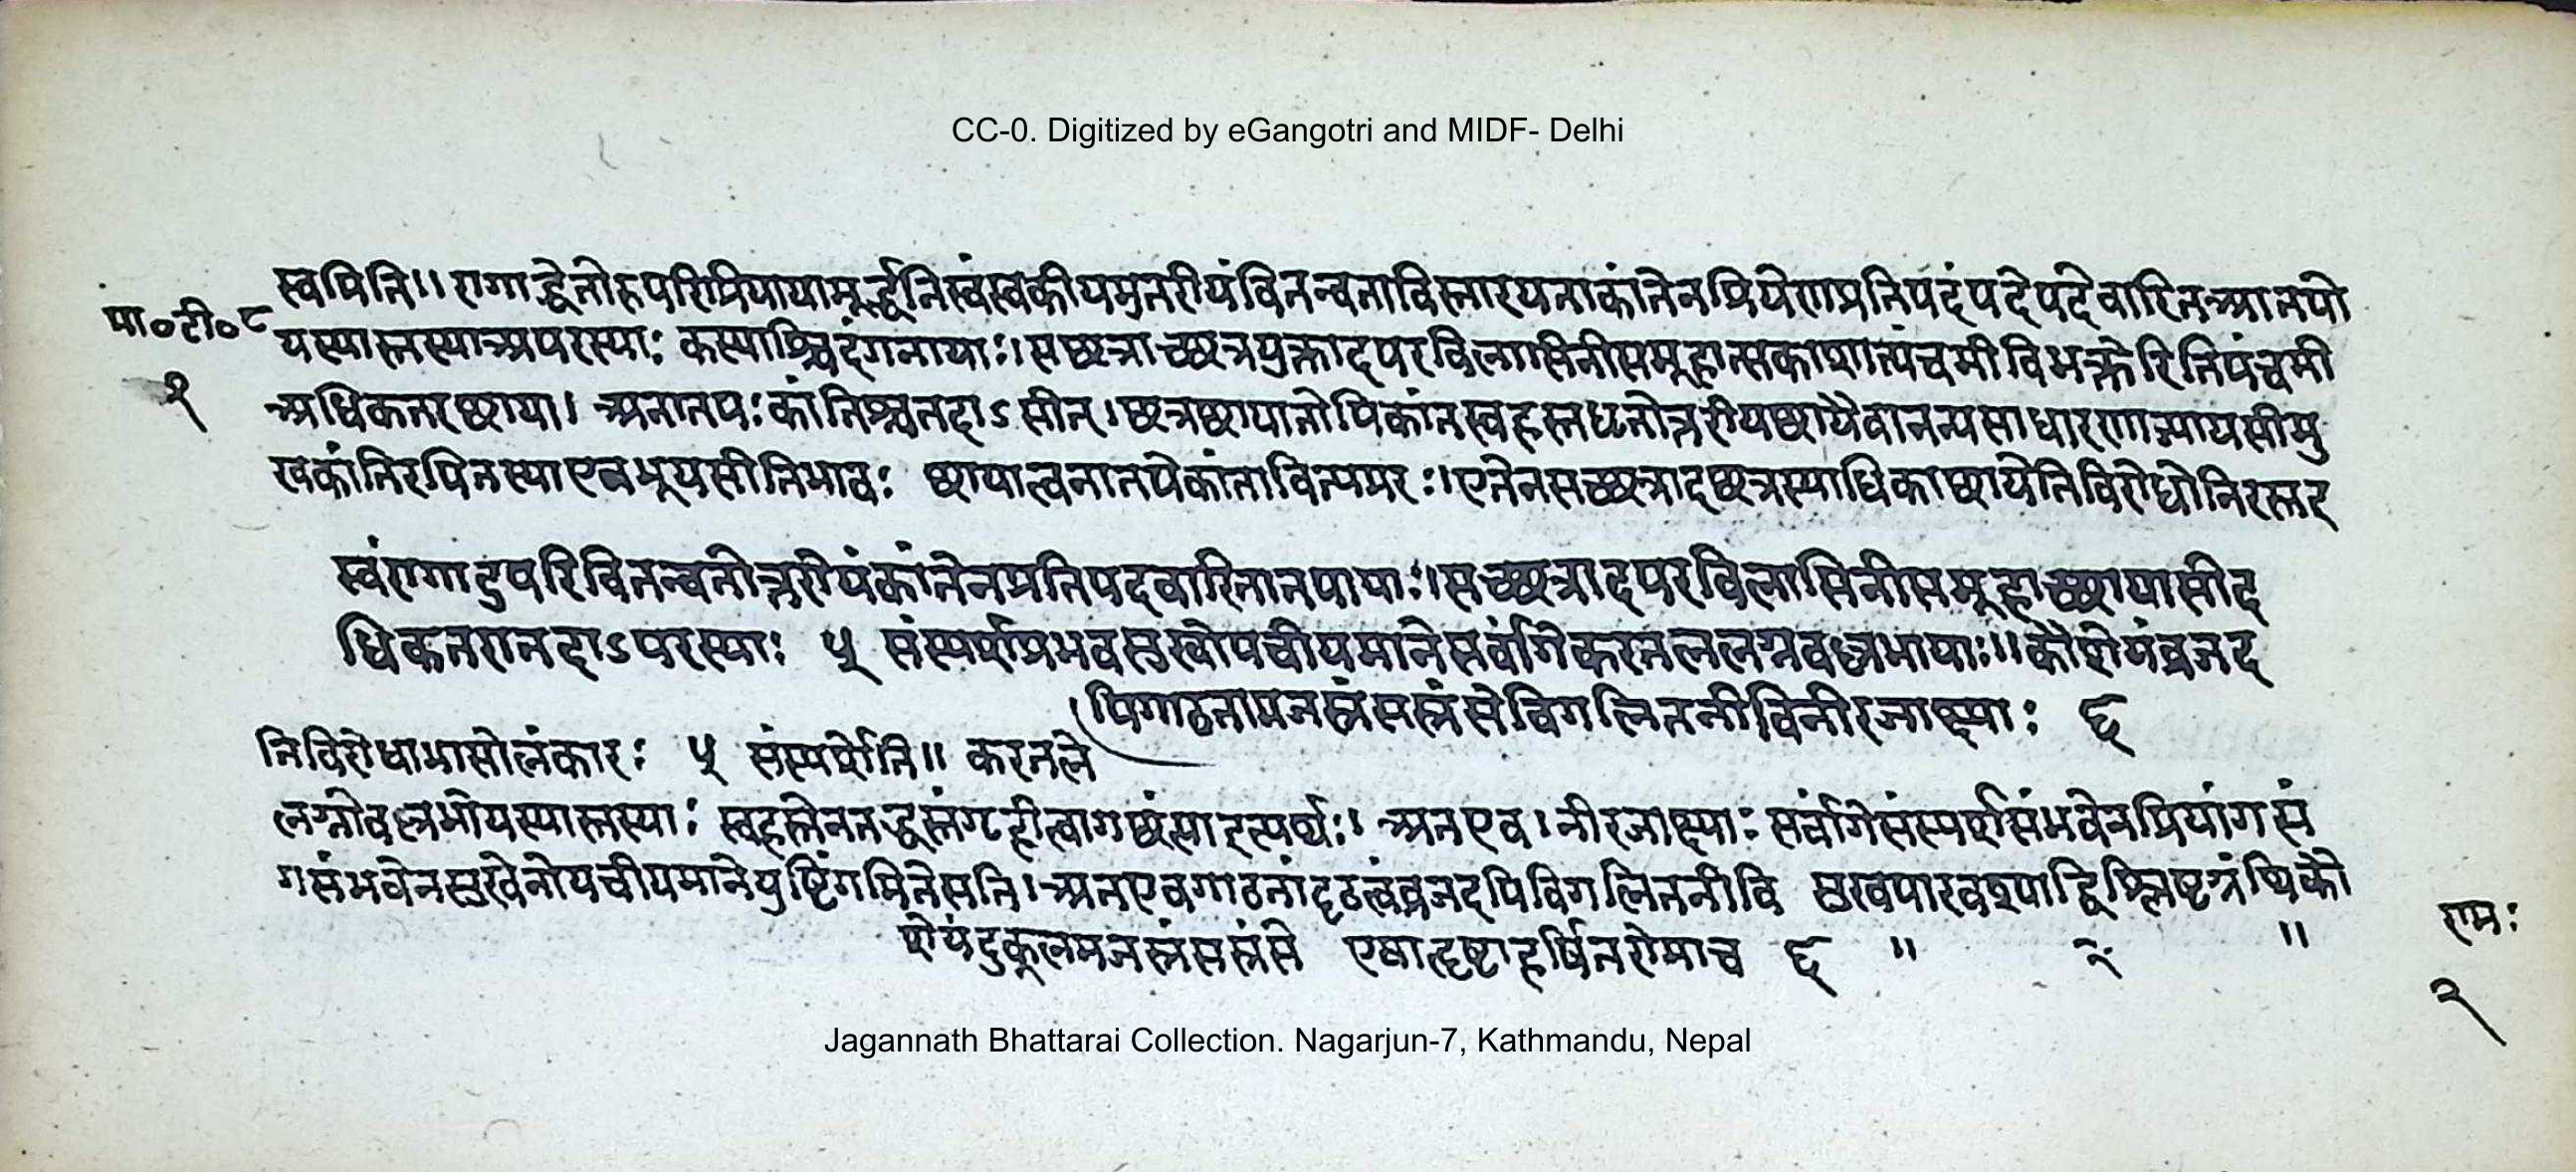 CC-0. Digitized by eGangotri and MIDF- Delhi
स्वमिति॥ रागाद्धेतोरुपरिप्रियायामूर्द्धनिस्वंस्वकीयमुत्तरीयंवितन्वताविस्तारयताकांतेनप्रियेणप्रतिपदंपदेपदेवारितआतपो
मा॰टी॰८
यस्यास्तस्याअपरस्याः कस्याश्चिदंगनायाः। सछत्राच्छत्रयुक्तादपरविलासिनीसमूहात्सकाशात्पंचमीविभक्तेरितिपंचमी
१
अधिकतरछाया। अनातपःकांतिश्चतदाऽसीत्। छत्रछायातोपिकांतस्वहस्तधृतोत्तरीयछायैवानन्यसाधारणाज्यायसीमु
खकांतिरपितस्याएवभूयसीतिभावः छायात्वनातपेकांतावित्यमरः। एतेनसच्छत्रादछत्रस्याधिकाछायेतिविरोधोनिरस्तइ
स्वंरागादुपरिवितन्वतोत्तरीयंकांतेनप्रतिपदवारितातपायाः॥ सच्छत्रादपरविलासिनीसमूहाच्छायासीद
धिकतरातदाऽपरस्याः ५ संस्पर्शप्रभवसुखोपचीयमानेसर्वांगेकरतललग्नवल्लभायाः॥ कौशेयंव्रजद
पिगाढतामजस्रंसस्रंसेविगलितनीविनीरजाक्ष्याः ६
तिविरोधाभासोलंकारः ५ संस्पर्शेति॥ करतले
लग्नोवल्लभोयस्यास्तस्याः स्वहस्तेनतद्धस्तंगृहीत्वागछंत्याइत्यर्थः। अतएव। नीरजाक्ष्याः सर्वांगेसंस्पर्शसंभवेनप्रियांगसं
गसंभवेनसुखेनोपचीयमानेपुष्टिंगमितेसति। अतएवगाढतांदृढत्वंव्रजदपिविगलितनीवि सुखपारवश्याद्विश्लिष्टग्रंथिकौ
शेयंदुकूलमजस्रंसस्रंसे एषादृष्टाहर्षितरोमाच ६ ॥ २ ॥
रामः
२
Jagannath Bhattarai Collection. Nagarjun-7, Kathmandu, Nepal